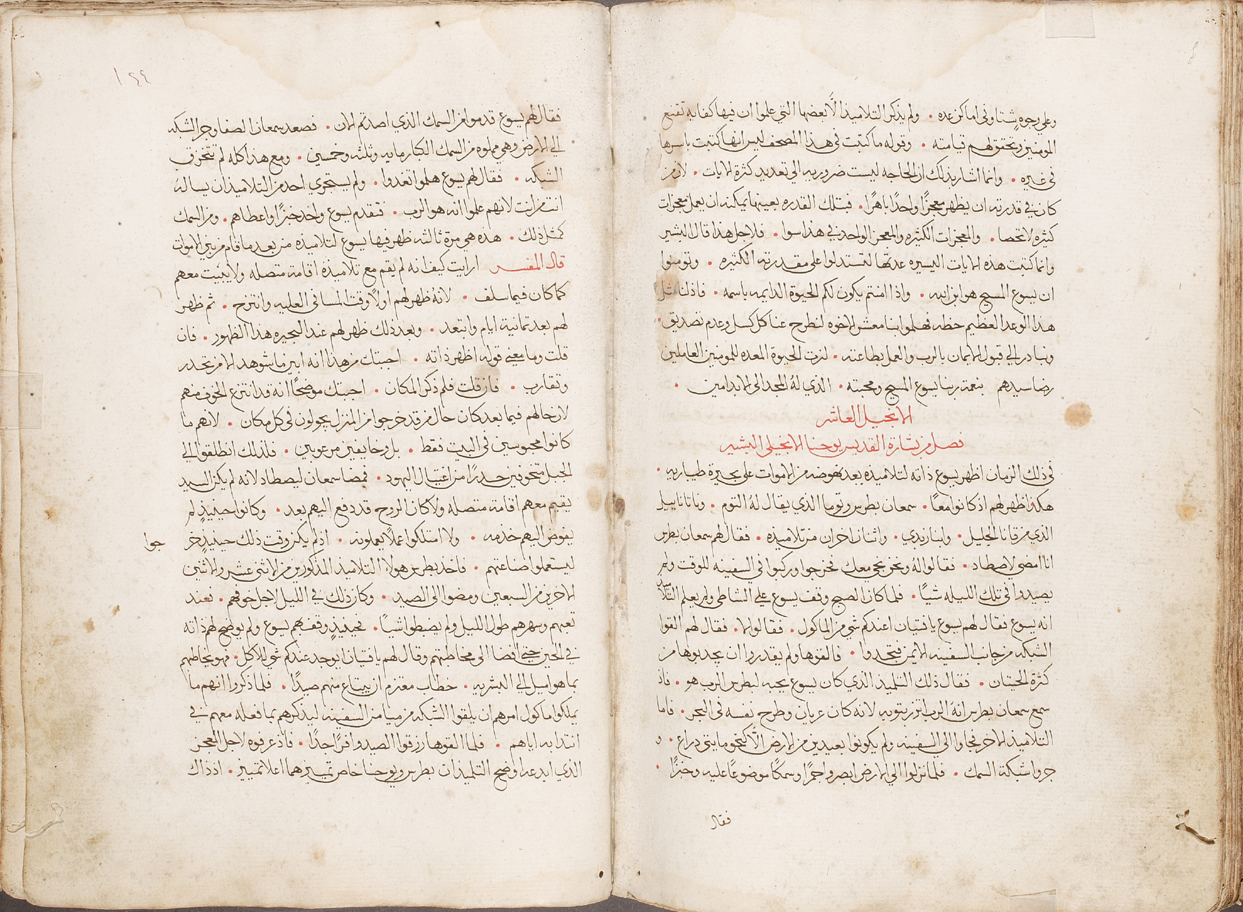 وعلى وجوه شتا وفي اماكن عده • ولم يذكر التلاميذ الا بعضها التي علموا ان فيها كفايه تقنع
المومنين وتحقق لهم قيامته • وقوله ما كتبت في هذا المصحف ليس انها كتبت باسرها
في غيره • وانما اشار بذلك ان الحاجه ليست ضروريه الي تعديد كثرة الايات • لان من
كان في قدرته ان يظهر معجزًا واحدًا باهرًا • فبتلك القدره بعينها يمكنه ان يعمل معجزات
كثيره لا تحصا • والمعجزات الكثيره والمعجز الواحد في هذا سوا • فلاجل هذا قال البشير
وانما كتبت هذه الايات اليسيره عدتها لتستدلوا على مقدرته الكثيره • وتومنوا
ان يسوع المسيح هو ابن الله • واذا امنتم يكون لكم الحيوة الدايمه باسمه • فاذ لنا مثل
هذا الوعد العظيم حظه فهلموا بنا معشر الاخوه لنطرح عنا كل كسل وعدم تصديق •
ونبادر الي قبول الايمان بالرب والعمل بطاعته • لنرث الحيوة المعده للمومنين العاملين
رضا سيدهم بنعمة ربنا يسوع المسيح ومحبته • الذي له المجد الى الابد امين •
الانجيل العاشر
فصل من بشارة القديس يوحنا الانجيلي البشير
في ذلك الزمان اظهر يسوع ذاته لتلاميذه بعد نهوضه من الاموات على بحيرة طباريه •
هكذا ظهر لهم اذ كانوا معًا • سمعان بطرس وتوما الذي يقال له التوم • وناثاناييل
الذي من قانا الجليل • وابنا زبدي • واثنان اخران من تلاميذه • فقال لهم سمعان بطرس
انا امضي لاصطاد • فقالوا له ونحن نجي معك فخرجوا وركبوا في السفينه للوقت ولم
يصيدوا في تلك الليله شيًا • فلما كان الصبح وقف يسوع على الشاطي ولم يعلم التلاميذ
انه يسوع فقال لهم يسوع يا فتيان اعندكم شي من الماكول • فقالوا لا • فقال لهم القوا
الشبكه من جانب السفينه الايمن فتجدوا • فالقوها ولم يقدروا ان يجذبوها من
كثرة الحيتان • فقال ذلك التلميذ الذي كان يسوع يحبه لبطرس الرب هو • فاذ
سمع سمعان بطرس انه الرب اتزر بثوبه لانه كان عريان وطرح نفسه في البحر • فاما
التلاميذ الاخر فجاوا الي السفينه ولم يكونوا بعيدين من الارض الا كنحو مايتي دراع • و
جروا شبكة السمك • فلما نزلوا الي الارض ابصروا جمرًا وسمكًا موضوعًا عليه وخبزًا •
فقال
١٤٤
فقال لهم يسوع قدموا من السمك الذي اصدتم الان • فصعد سمعان الصفا وجر الشبكه
الي الارض وهي مملوه من السمك الكبار مايه وثلثه وخمسين • ومع هذا كله لم تتخرق
الشبكه • فقال لهم يسوع هلموا تغدوا • ولم يستجري احد من التلاميذ ان يساله
انت من انت لانهم علموا انه هو الرب • فتقدم يسوع واخذ خبزًا واعطاهم • ومن السمك
كمثل ذلك • هذه هي مرة ثالثه ظهر فيها يسوع لتلاميذه من بعد ما قام من بين الاموات
قال المفسر ارايت كيف انه لم يقم مع تلاميذه اقامة متصله ولا يبيت معهم
كما كان فيما سلف • لانه ظهر لهم اولًا وقت المسا في العليه وانتزح • ثم ظهر
لهم بعد ثمانية ايام وابتعد • وبعد ذلك ظهر لهم عند البحيره هذا الظهور • فان
قلت وما معني قوله اظهر ذاته • اجبتك من هذا انه اين ما شوهد الامر تحدر
وتقارب • فان قلت فلم ذكر المكان • اجبتك موضحًا انه قد انتزع الخوف منهم
لانجالهم فيما بعد كان حال من قد خرجوا من المنزل يجولون في كل مكان • لانهم ما
كانوا محبوسين في البيت فقط • بل وخايفين مرعوبين • فلذلك انطلقوا الي
الجبل متخوفين حذرًا من اغتيال اليهود • فمضا سمعان ليصطاد لانه لم يكن السيد
يقيم معهم اقامة متصله ولا كان الروح قد دفع اليهم بعد • وكانوا حينيذ لم
يفوض اليهم خدمه • ولا امتلكوا عملًا يعملونه • اذ لم يكن وقت ذلك حينيذ خر
جوا
ليستعملوا صناعتهم • فاخذ بطرس هولا التلاميذ المذكورين من الاثني عشر والاثنين
الاخرين من السبعين ومضوا الى الصيد • وكان ذلك في الليل لاجل خوفهم • فعند
تعبهم وسهرهم طول الليل ولم يضبطوا شيًا • فحينيذ وقف بهم يسوع ولم يوضح لهم ذاته
في الحين حتي افضا الى مخاطبتهم وقال لهم يا فتيان ايوجد عندكم شي للاكل • فهو يخاطبهم
بما هو اميل الي البشريه • خطاب معتزم ان يبتاع منهم صيدًا • فلما ذكروا انهم ما
يملكوا ماكول امرهم ان يلقوا الشبكه من ميامن السفينه ليذكرهم بما فعله معهم في
انتدابه اياهم • فلما القوها رزقوا الصيد وافرًا جدًا • فاذ عرفوه لاجل المعجز
الذي ابدعه اوضح التلميذان بطرس ويوحنا خاص تمييزهما اعلا تمييز • اذ ذاك